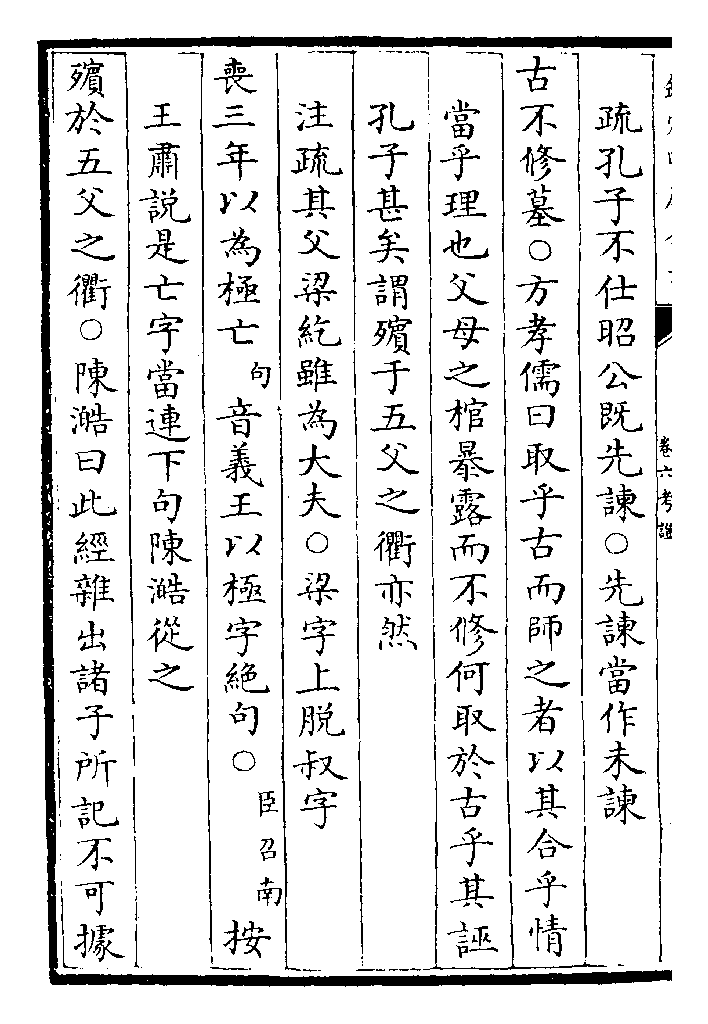 卷六考證
疏孔子不仕昭公既先諫○先諫當作未諫
古不修墓○方孝儒曰取乎古而師之者以其合乎情
當乎理也父母之棺暴露而不修何取於古乎其誣
孔子甚矣謂殯于五父之衢亦然
注疏其父梁紇雖為大夫○梁字上脱叔字
喪三年以為極亡句音義王以極字絶句○臣召南按
王肅説是亡字當連下句陳澔從之
殯於五父之衢○陳澔曰此經雜出諸子所記不可據